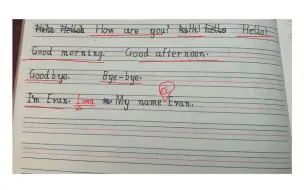 How are you! Hello!
Good morning. Good afternoon.
Goodbye. Bye-bye.
I'm Evan. Evan My name is Evan.